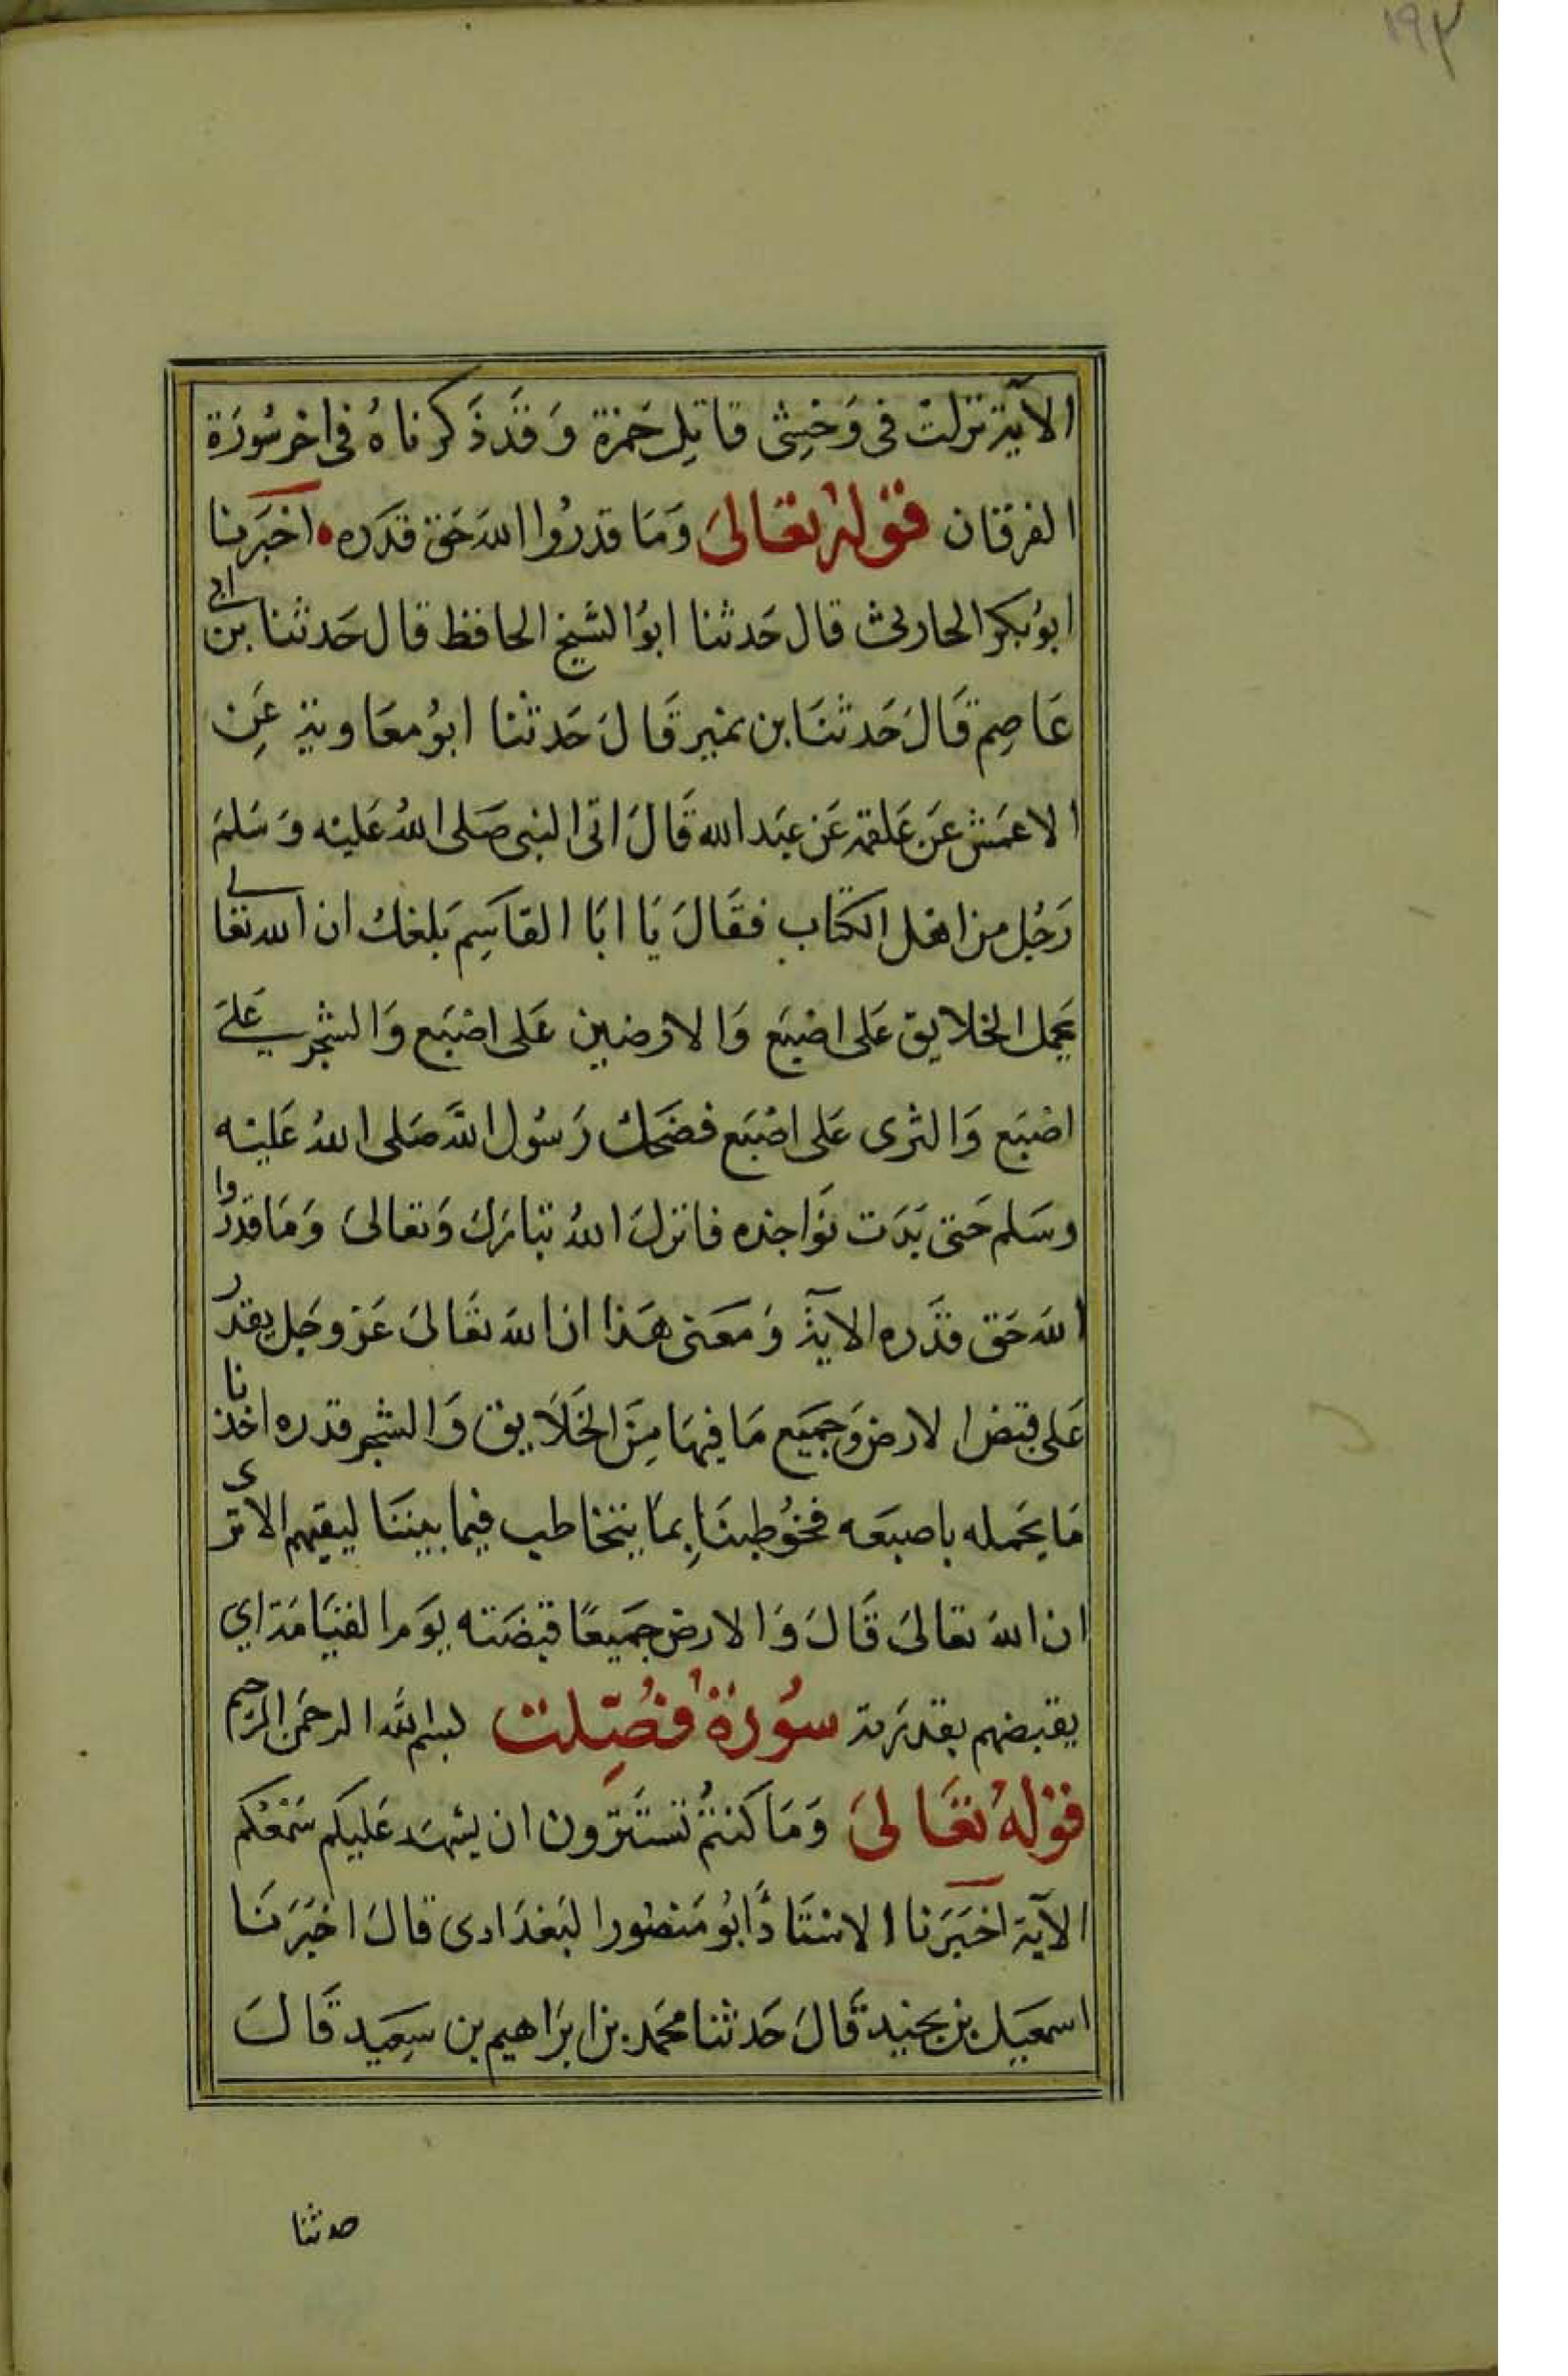 ١٩٢
الآية نزلت في وَحْشِى قاتِل حَمزة وَقَد ذَكرناهُ فى اخر سُورَة
الفرقان قوله تعَالىَ وَمَا قدرُوا اللهَ حَق قدَره اخبَرنا
ابوُبكر الحارثى قال حَدثنا ابوُ الشيخ الحافظ قال حَدثنا بن ابى
عَاصِم قَالَ حَدثنَا بن نمير قَالَ حَدثنا ابوُ معَاوية عَنِ
الاعمَش عَن عَلقمة عَن عبَد الله قَالَ اتى النبى صَلى اللهُ عَليْه وَسَلمَ
رَجُل من اهل الكتاب فقَالَ يَا ابَا القاسِم بَلغك ان الله تعَالى
يحَمل الخلايق عَلى اصْبَع وَالارضين عَلى اصْبَع وَالشجر عَلىَ
اصْبَع وَالثرى عَلى اصْبَع فضَحك رَسُول اللهَ صَلى اللهُ عَليْه
وسَلم حَتى بَدَت نوَاجذه فانزلَ اللهُ تبَارَكَ وَتعالىَ وَمَا قدرُوا
اللهَ حَق قدَره الاية وَمعَنى هَذا ان اللهَ تعَالىَ عَز وجَل يقدر
عَلى قبَض الارض وَجميَع مَا فيهَا مِنَ الخَلاَيق وَالشجر قدره اخذنا
مَا يحَمله باصبعَه فخوُطبنَا بِمَا يتخاطب فيما بيننَا ليفهم الا ترى
ان اللهَ تعالىَ قَالَ وَالارض جَميعًا قبضَته يوَم القيَامَة اي
يقبضهم بقدرَته سُورَةُ فُصّلت بسم الله الرحمَن الرحيم
قوْلهُ تعَالىَ وَمَا كنتمُ تستَترون ان يشهَد عَليكم سَمْعُكم
الآية اخبَرَنا الاستَاذُ ابوُ مَنصور البَغدَادى قالَ اخبَرَنَا
اسمعَيل بن نجيد قَالَ حَدثنا محَمد بن ابرَاهيم بن سِعَيد قَالَ
حدثنا